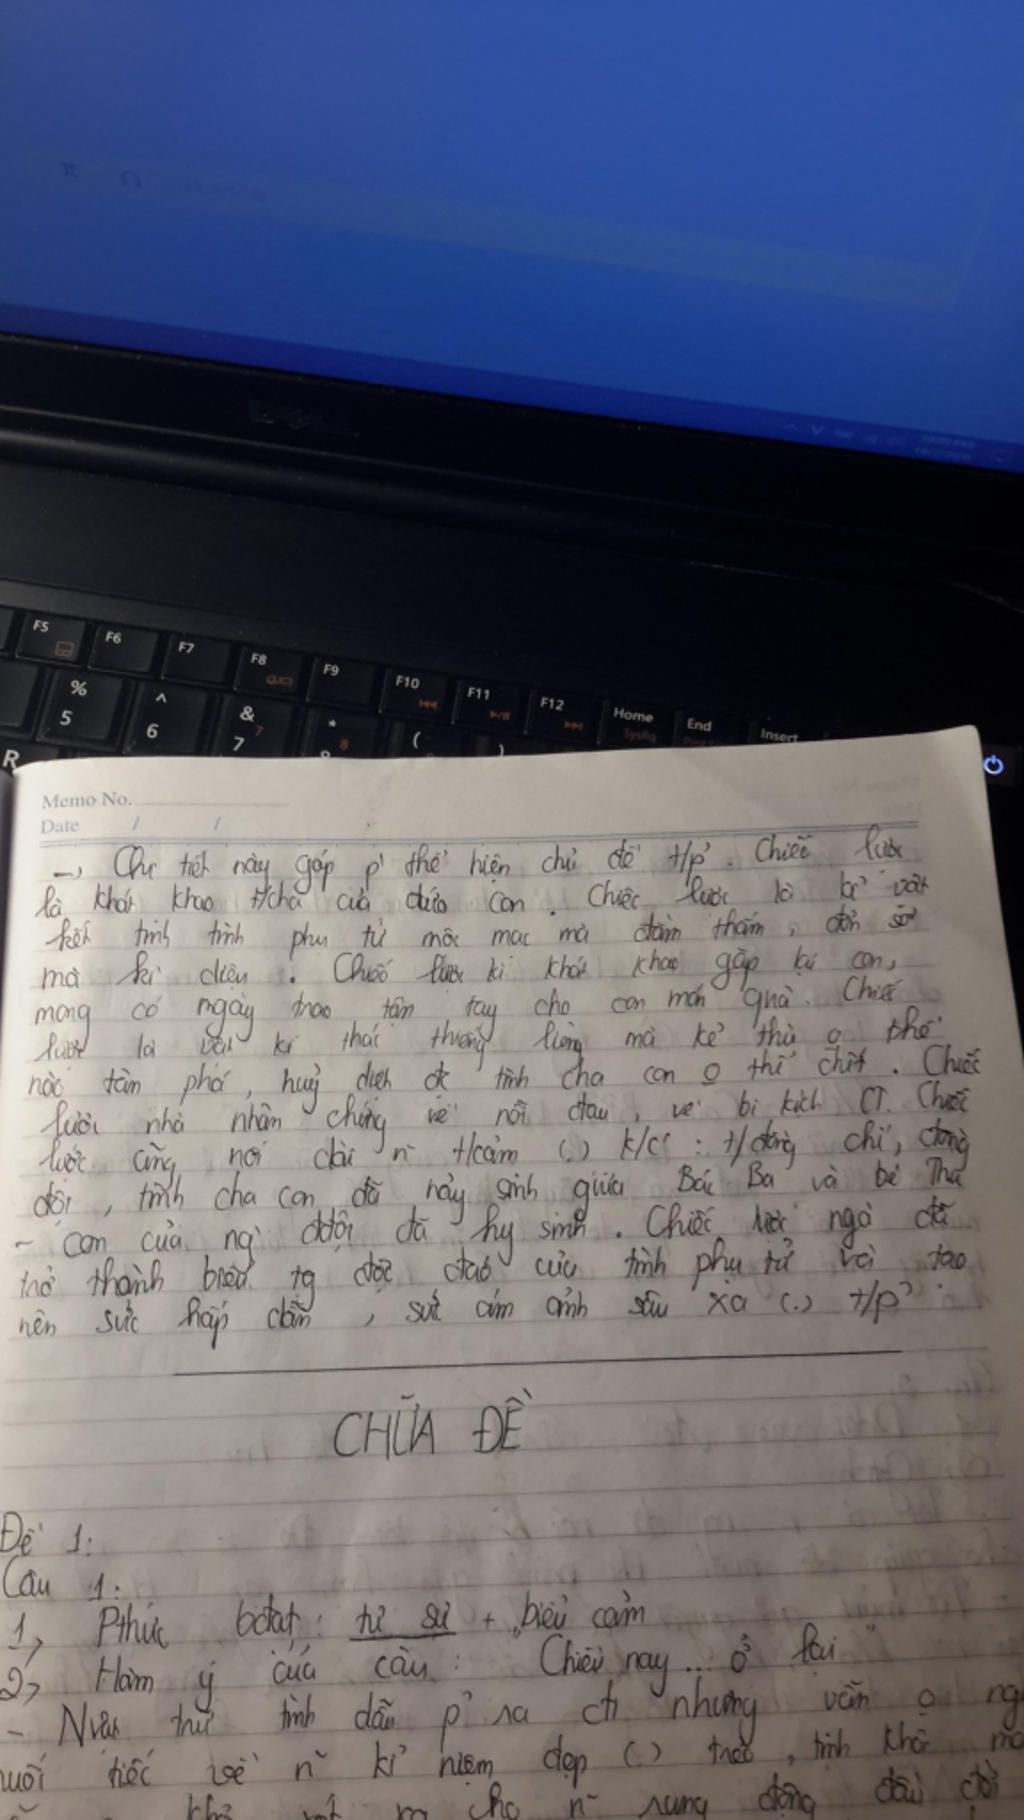 F5
F6
F7
F8
F9
F10
F11
F12
Home
SysRq
End
Insert
%
5
^
6
&
7
7
*
8
(
)
R
Memo No.
Date / /
→ Chi tiết này góp p' thể hiện chủ đề t/p'. Chiếc lược
là khát khao t/cha của đứa con. Chiếc lược là kỉ vật
kết tinh tình phụ tử mộc mạc mà đằm thắm, đơn sơ
mà kì diệu. Chiếc lược kí khát khao gặp lại con,
mong có ngày trao tận tay cho con món quà. Chiếc
lược là vật kí thác thiêng liêng mà kẻ thù o thể
nào tàn phá, huỷ diệt đc tình cha con o thể chết. Chiếc
lược nhà nhân chứng về nỗi đau, về bi kịch CT. Chiếc
lược cũng nối dài n~ t/cảm (.) k/c : t/đồng chí, đồng
đội, tình cha con đã nảy sinh giữa Bác Ba và bé Thu
- con của ng' đđội đã hy sinh. Chiếc lược ngà đã
trở thành biểu tg độc đáo của tình phụ tử và tạo
nên sức hấp dẫn, sức ám ảnh sâu xa (.) t/p'.
CHỮA ĐỀ
Đề 1:
Câu 1:
1, Pthức bđạt: tự sự + biểu cảm
2, Hàm ý của câu: "Chiều nay... ở lại"
- Nvật trữ tình dẫu p' ra đi nhưng vẫn o
nuối tiếc về n~ kỉ niệm đẹp (.) trẻo, tinh khôi
cho n~ rung động đầu đời